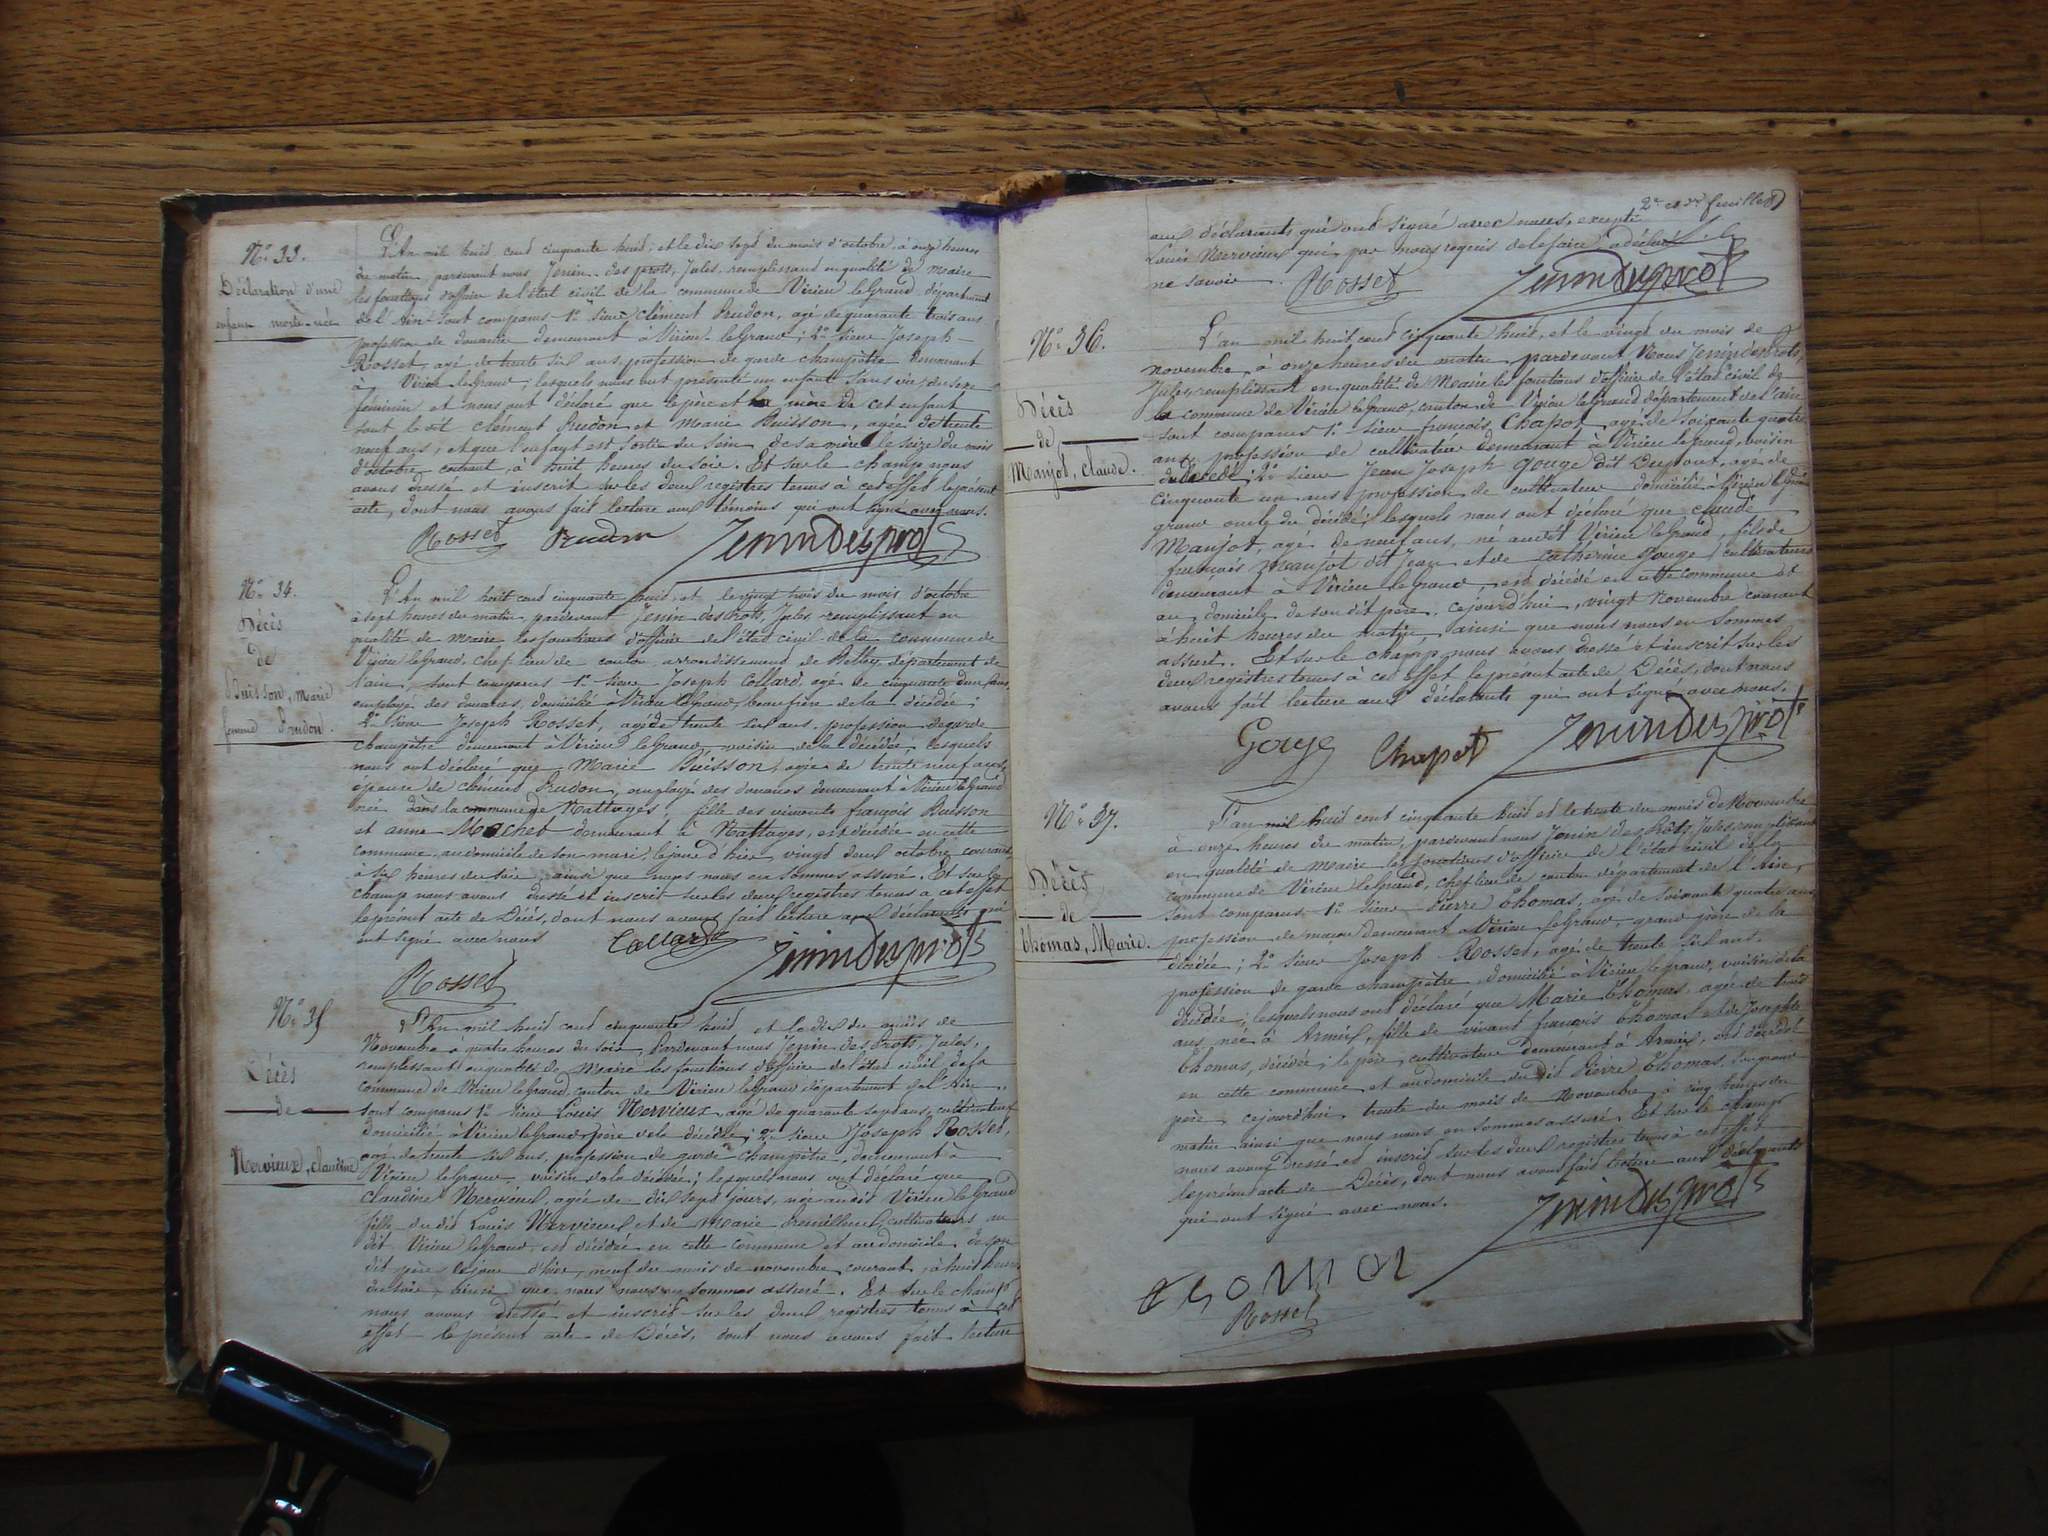 N° 33.
Déclaration d'une
enfant morte-née
L'An mil huit cent cinquante huit, et le dix sept du mois d'octobre à onze heures
du matin, pardevant nous Jenin-des prots, Jules, remplissant en qualité de maire
les fonctions d'officier de l'état civil de la commune de Virieu le Grand département
de l'Ain sont comparus 1° sieur Clément Prudon, agé de quarante trois ans
profession de douanier demeurant à Virieu-le Grand; 2° sieur Joseph-
Rosset, agé de trente six ans, profession de garde champêtre demeurant
à Virieu le Grand, lesquels nous ont présenté un enfant sans vie, du sexe
féminin et nous ont déclaré que le père et la mère de cet enfant
sont le dit Clément Prudon et Marie Buisson, agée de trente
neuf ans, et que l'enfant est sortie du sein de sa mère le seize du mois
d'octobre courant, à huit heures du soir. Et sur le champ nous
avons dressé et inscrit sur les deux registres tenus à cet effet le présent
acte, dont nous avons fait lecture aux témoins qui ont signé avec nous.
Rosset Prudon Jenindesprots
N° 34.
Décès
de
Buisson, Marie
femme Prudon.
L'An mil huit cent cinquante huit, et le vingt trois du mois d'octobre
à sept heures du matin, pardevant Jenin desprots, Jules, remplissant en
qualité de maire les fonctions d'officier de l'état civil de la commune de
Virieu le Grand, chef-lieu de canton, arrondissement de Belley, département de
l'ain, sont comparus 1° sieur Joseph Collard, agé de cinquante deux ans,
employé des douanes, domicilié à Virieu le Grand, beau frère de la décédée;
2° sieur Joseph Rosset, agé de trente six ans, profession de garde
champêtre demeurant à Virieu le Grand, voisin de la décédée, lesquels
nous ont déclaré que Marie Buisson, agée de trente neuf ans,
épouse de Clément Prudon, employé des douanes demeurant à Virieu le Grand
née dans la commune de Nattages, fille des vivants françois Buisson
et anne Mochet demeurant à Nattages, est décédée en cette
commune, au domicile de son mari, le jour d'hier, vingt deux octobre courant
à six heures du soir, ainsi que nous nous en sommes assuré. Et sur le
champ nous avons dressé et inscrit sur les deux registres tenus à cet effet
le présent acte de Décès, dont nous avons fait lecture aux déclarants qui
ont signé avec nous Collard Jenindesprots
Rosset
N° 35
Décès
de
Nervieux, claudine
L'An mil huit cent cinquante huit, et le dix du mois de
Novembre à quatre heures du soir, Pardevant nous Jenin des prots, Jules,
remplissant en qualité de Maire les fonctions d'officier de l'état civil de la
commune de Virieu le Grand, canton de Virieu le Grand département de l'Ain,
sont comparus 1° sieur Louis Nervieux, agé de quarante sept ans, cultivateur
domicilié à Virieu le Grand, père de la décédée; 2° sieur Joseph Rosset,
agé de trente six ans, profession de garde champêtre, demeurant à
Virieu le Grand, voisin de la décédée; lesquels nous ont déclaré que
Claudine Nervieux, agée de dix sept jours, née au dit Virieu le Grand
fille du dit Louis Nervieux et de Marie cultivateurs au
dit Virieu le Grand, est décédée en cette commune et au domicile de son
dit père le jour d'hier, neuf du mois de novembre courant, à huit heures
du soir, ainsi que nous nous en sommes assuré. Et sur le champ
nous avons dressé et inscrit sur les deux registres tenus à cet
effet le présent acte de Décès, dont nous avons fait lecture
2e et feuille
aux déclarants qui ont signé avec nous, excepté
Louis Nervieux qui, par nous requis de le faire a déclaré
ne savoir. Rosset Jenindesprots
N° 36.
Décès
de
Manjot, Claude.
L'an mil huit cent cinquante huit, et le vingt du mois de
novembre, à onze heures du matin, pardevant Nous Jenin desprots,
Jules, remplissant en qualité de Maire les fonctions d'officier de l'état civil de
la commune de Virieu le Grand, canton de Virieu le Grand département de l'ain
sont comparus 1° sieur françois Chapot, agé de soixante quatre
ans, profession de cultivateur demeurant à Virieu le grand, voisin
du décédé; 2° sieur Jean Joseph Gouge dit Dupont, agé de
cinquante un ans profession de cultivateur domicilié à Virieu le Grand
grand oncle du décédé; lesquels nous ont déclaré que Claude
Manjot, agé de neuf ans, né audit Virieu le Grand, fils de
françois Manjot dit Jean et de Catherine Gouge, cultivateurs
demeurant à Virieu le grand, est décédé en cette commune et
au domicile de son dit père, cejourd'hui, vingt Novembre courant
à huit heures du matin, ainsi que nous nous en sommes
assuré. Et sur le champ, nous avons dressé et inscrit sur les
deux registres tenus à cet effet le présent acte de Décès, dont nous
avons fait lecture aux déclarants qui ont signé avec nous.
Gouge Chapot Jenindesprots
N° 37.
Décès
de
Thomas, Marie.
L'an mil huit cent cinquante huit et le trente du mois de Novembre
à onze heures du matin, pardevant nous Jenin des Prots, Jules, remplissant
en qualité de maire les fonctions d'officier de l'état civil de la
commune de Virieu le Grand, chef lieu de canton département de l'Ain,
sont comparus 1° sieur Pierre Thomas, agé de soixante quatre ans
profession de maçon demeurant à Virieu le Grand, grand père de la
décédée; 2° sieur Joseph Rosset, agé de trente six ans,
profession de garde champêtre, domicilié à Virieu le grand, voisin de la
décédée; lesquels nous ont déclaré que Marie Thomas, agée de trois
ans, née à Armix, fille de vivant françois Thomas et de Josephte
Thomas, décédée; le père, cultivateur demeurant à Armix, est décédée
en cette commune et au domicile du dit Pierre Thomas, son grand
père, cejourd'hui, trente du mois de novembre, à cinq heures du
matin ainsi que nous nous en sommes assuré. Et sur le champ
nous avons dressé et inscrit sur les deux registres tenus à cet effet
le présent acte de Décès, dont nous avons fait lecture aux déclarants
qui ont signé avec nous. Jenindesprots
Rosset